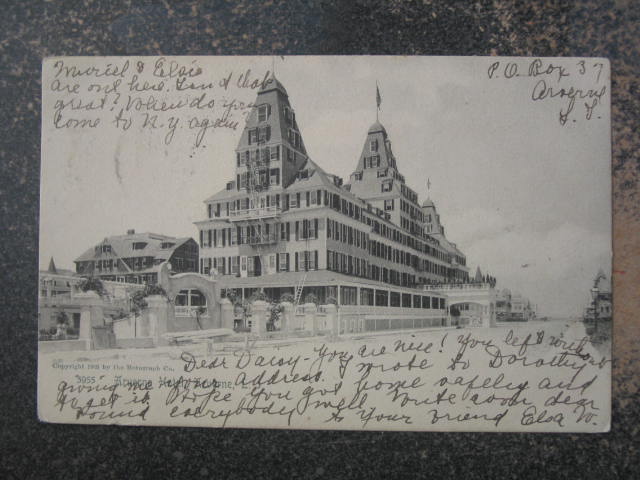 Muriel & Elsie
are out here. Isn't that
great? When do you
come to N.Y. again
P.O. Box 37
Arverne
L.I.
Copyright 1905 by the Rotograph Co.
3955 Arverne Arverne,
Dear Daisy - You are nice! you left without
giving me your Address. I wrote to Dorothy
to get it. Hope you got home safely and
found everybody well. Write soon dear
to your friend Elsa W.